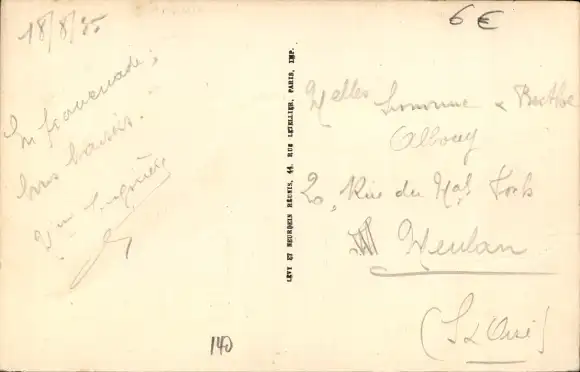 18/8/35
En promenade,
bons baisers.
6 €
Melles Simonne & Berthe
2, Rue du Mal Foch
Meulan
(S & Oise)
LÉVY ET NEURDEIN RÉUNIS, 44, RUE LETELLIER, PARIS, IMP.
140